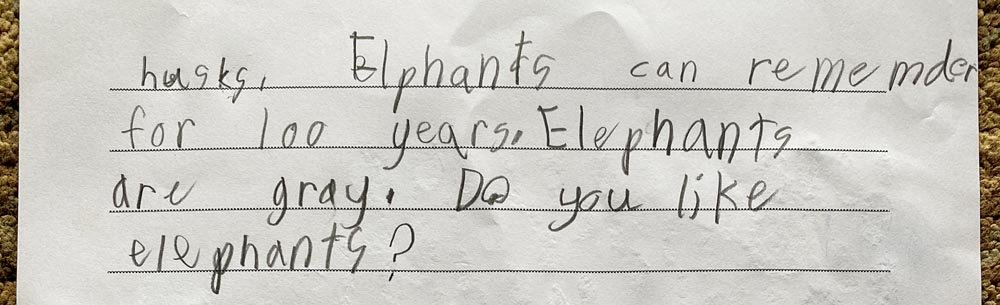 husks. Elphants can rememder
for 100 years. Elephants
are gray. Do you like
elephants?